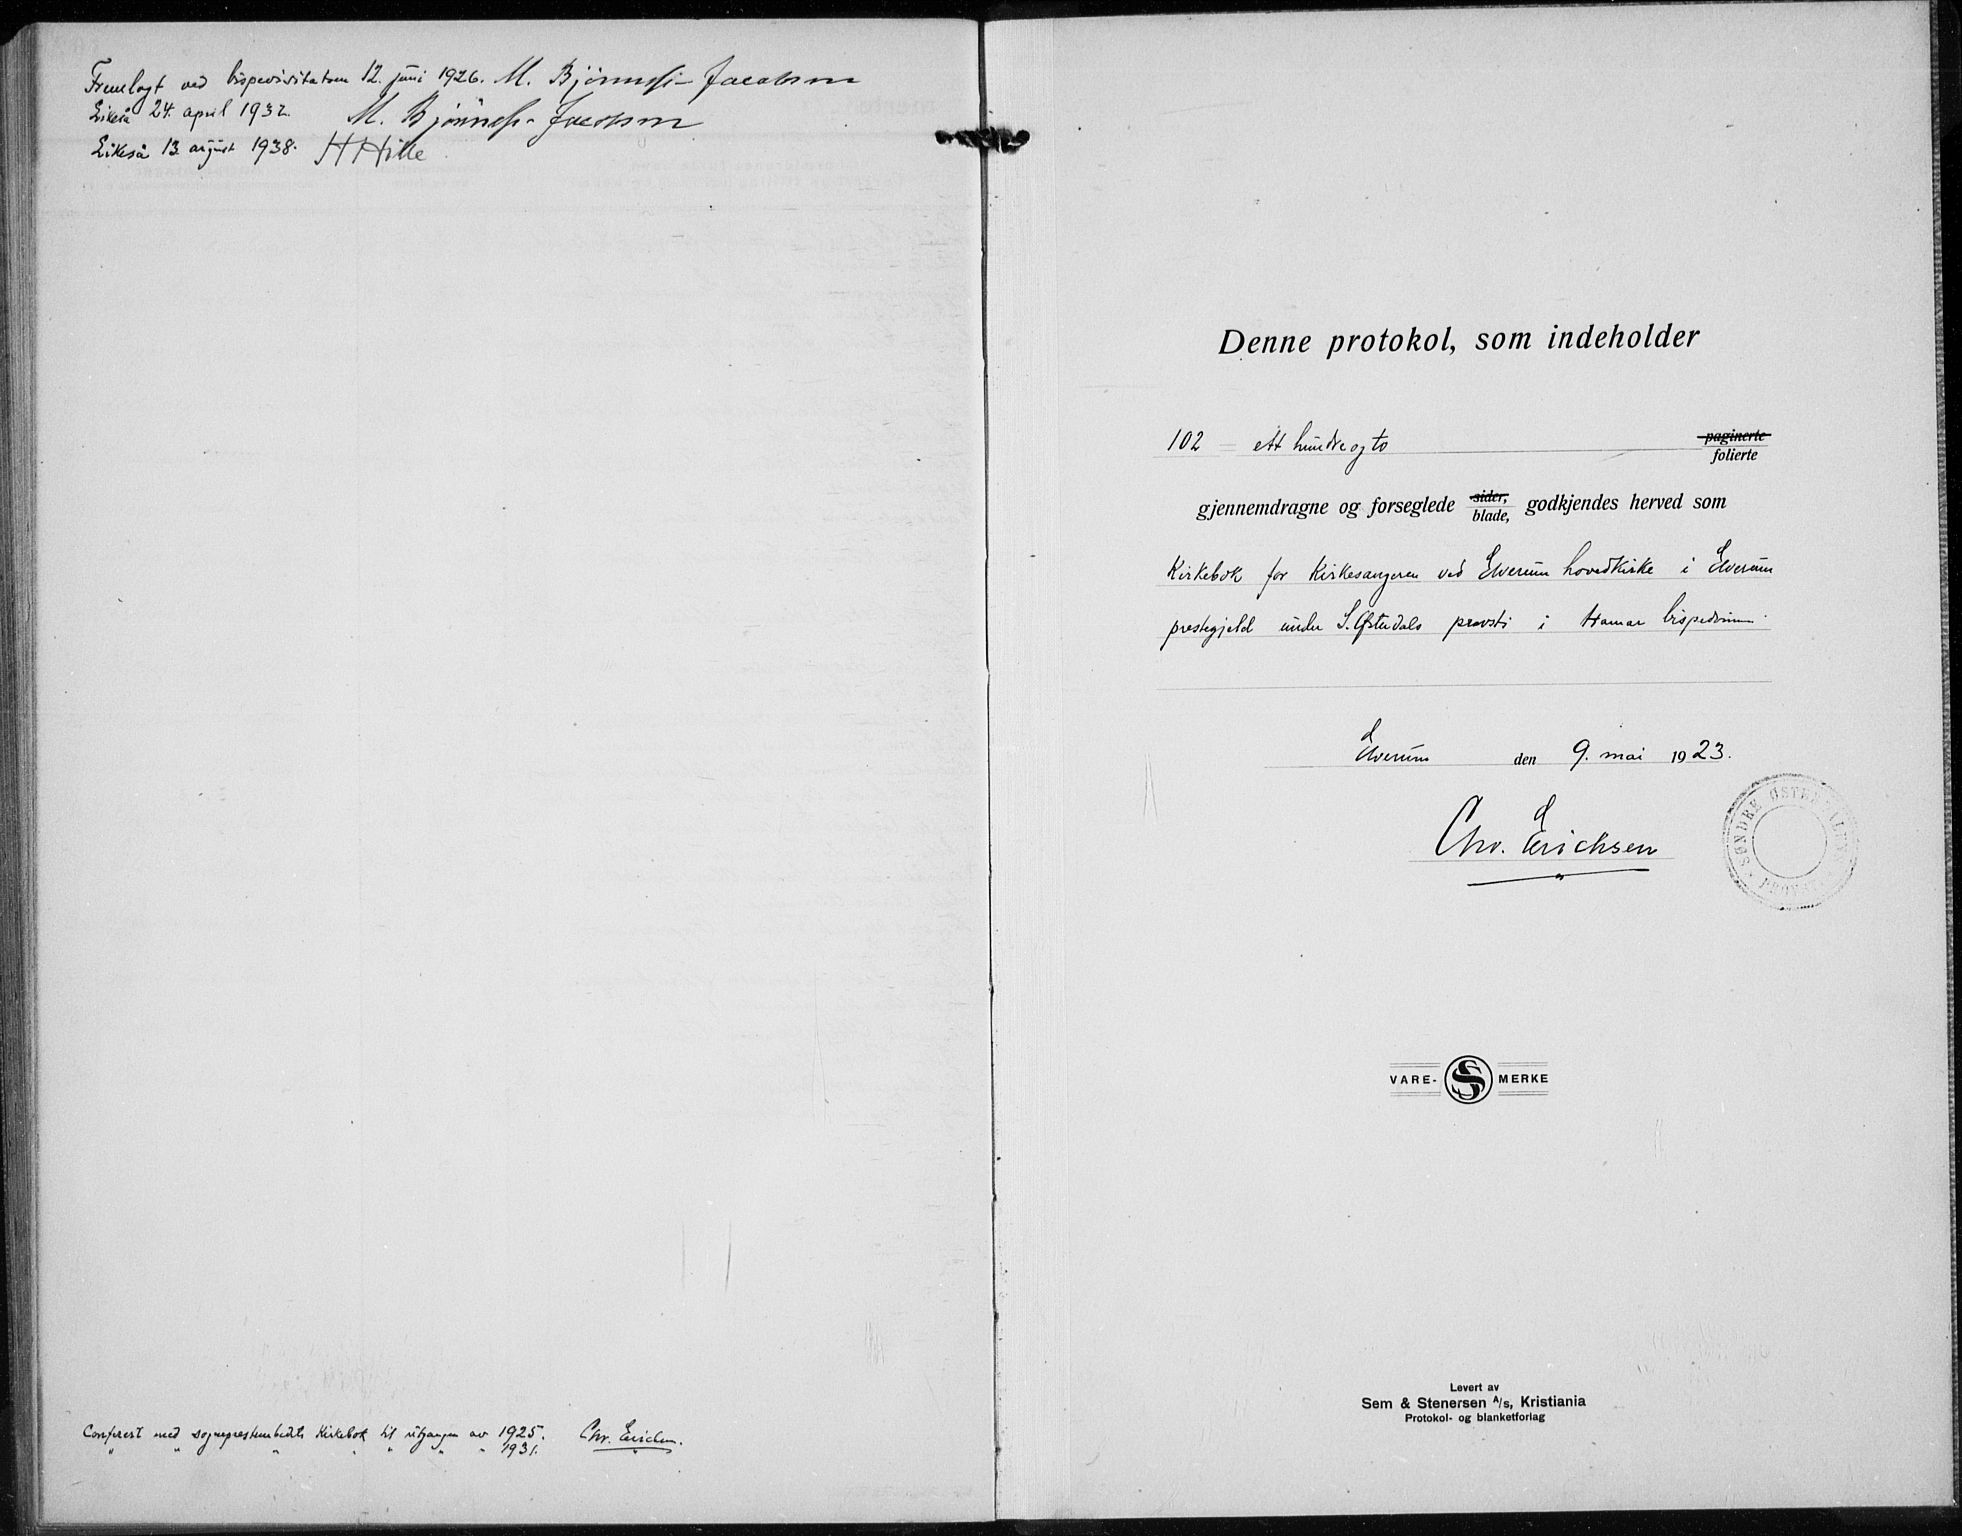 Fremlagt ved bispevisitatsen 12. juni 1926. M. Bjønness-Jacobsen
Likeså 24. april 1932. M. Bjønness-Jacobsen
Likeså 13. august 1938. H Hille
Conferert med sogneprestembedets Kirkebok til utgangen av 1925. Chr. Erichsen.
" " " " " " " 1931. "
Denne protokol, som indeholder
102 = ett hundre og to paginerte
folierte
gjennemdragne og forseglede sider, godkjendes herved som
blade,
Kirkebok for Kirkesangeren ved Elverum hovedkirke i Elverum
prestegjeld under S. Østerdals provsti i Hamar bispedømme.
Elverum den 9. mai 1923.
Chr. Erichsen
SØNDRE ØSTERDALENS PROVSTI
VARE- SS MERKE
Levert av
Sem & Stenersen A/s, Kristiania
Protokol- og blanketforlag